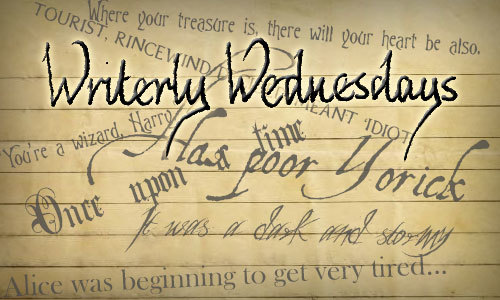 Where your treasure is, there will your heart be also.
TOURIST, RINCEWIND
Writerly Wednesdays
MEANT 'IDIOT
You're a wizard, Harry
Alas poor Yorick
Once upon a time
It was a dark and stormy
Alice was beginning to get very tired...